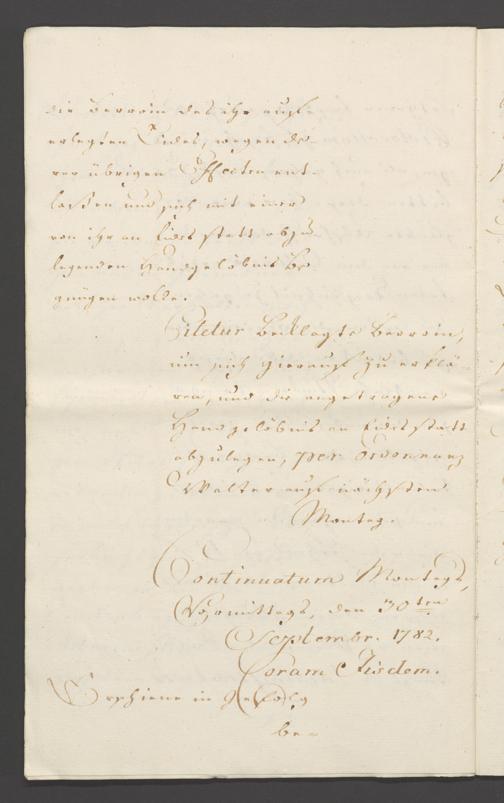 die Berroin des ihr aufl
erlegten Eides, wegen de-
ren übrigen Effecten ent-
laßen und sich mit einer
von ihr an Eides statt abzu-
legenden Handgelöbnis be-
gnügen wolle.
Citetur Beklagte Berroin,
um sich hierauf zu erklä-
ren, und die angetragene
Handgelöbnis an Eides statt
abzulegen, per Ordonnanz
Walter auf nächsten
Montag.
Continuatum Montags,
Vormittags, den 30ten
Septembr. 1782.
Coram Iisdem.
Erschiene in Gefolg
be-